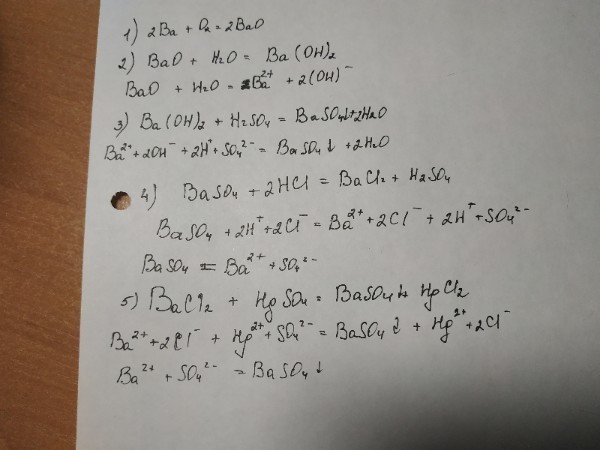 1) 2Ba + O₂ = 2BaO
2) BaO + H₂O = Ba(OH)₂
BaO + H₂O = Ba²⁺ + 2(OH)⁻
3) Ba(OH)₂ + H₂SO₄ = BaSO₄↓+2H₂O
Ba²⁺+2OH⁻ + 2H⁺+SO₄²⁻ = BaSO₄↓ +2H₂O
4) BaSO₄ + 2HCl = BaCl₂ + H₂SO₄
BaSO₄ + 2H⁺+2Cl⁻ = Ba²⁺+2Cl⁻ + 2H⁺+SO₄²⁻
BaSO₄ = Ba²⁺ + SO₄²⁻
5) BaCl₂ + HgSO₄ = BaSO₄↓+ HgCl₂
Ba²⁺+2Cl⁻ + Hg²⁺+SO₄²⁻ = BaSO₄↓ + Hg²⁺+2Cl⁻
Ba²⁺ + SO₄²⁻ = BaSO₄↓